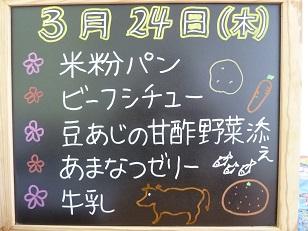 3月24日(木)
米粉パン
ビーフシチュー
豆あじの甘酢野菜添え
あまなつゼリー
牛乳